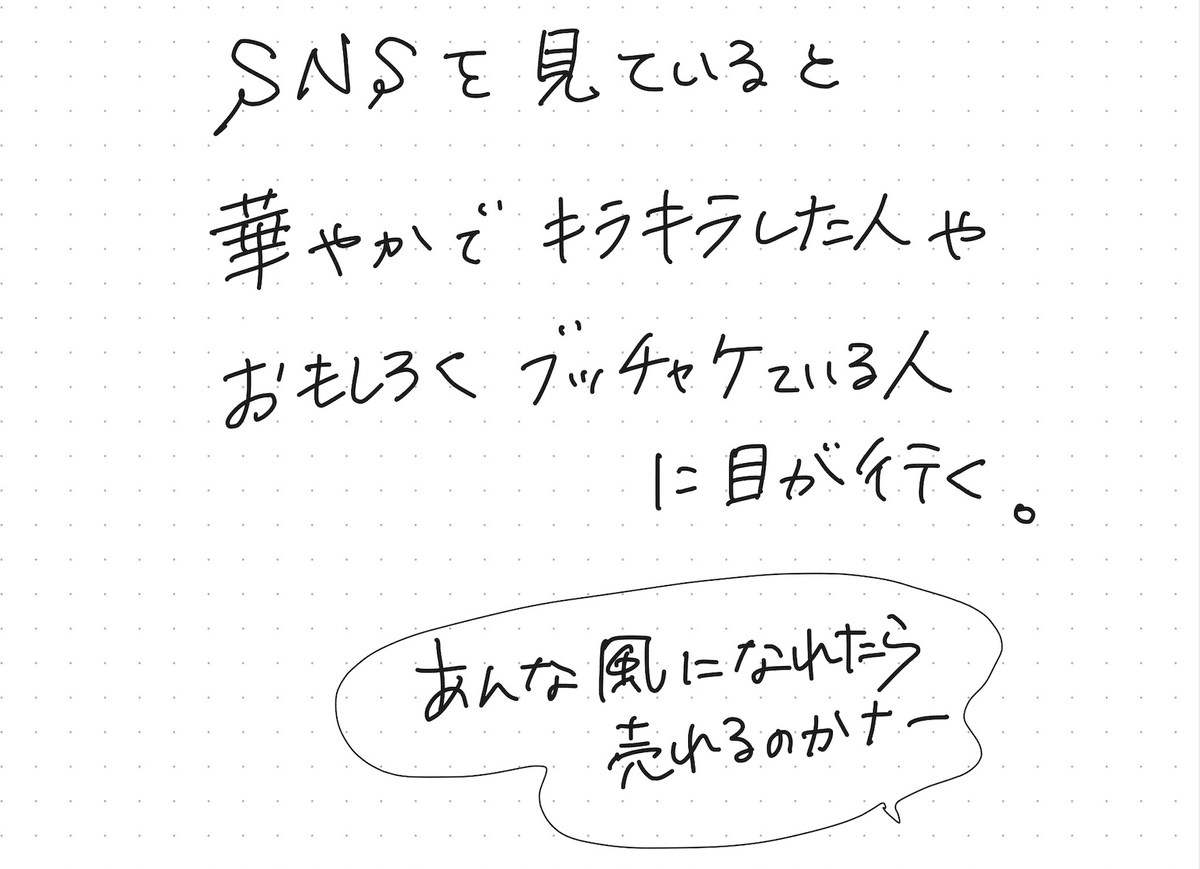 SNSを見ていると
華やかでキラキラした人や
おもしろくブッチャケている人
に目が行く。
あんな風になれたら
売れるのかナー